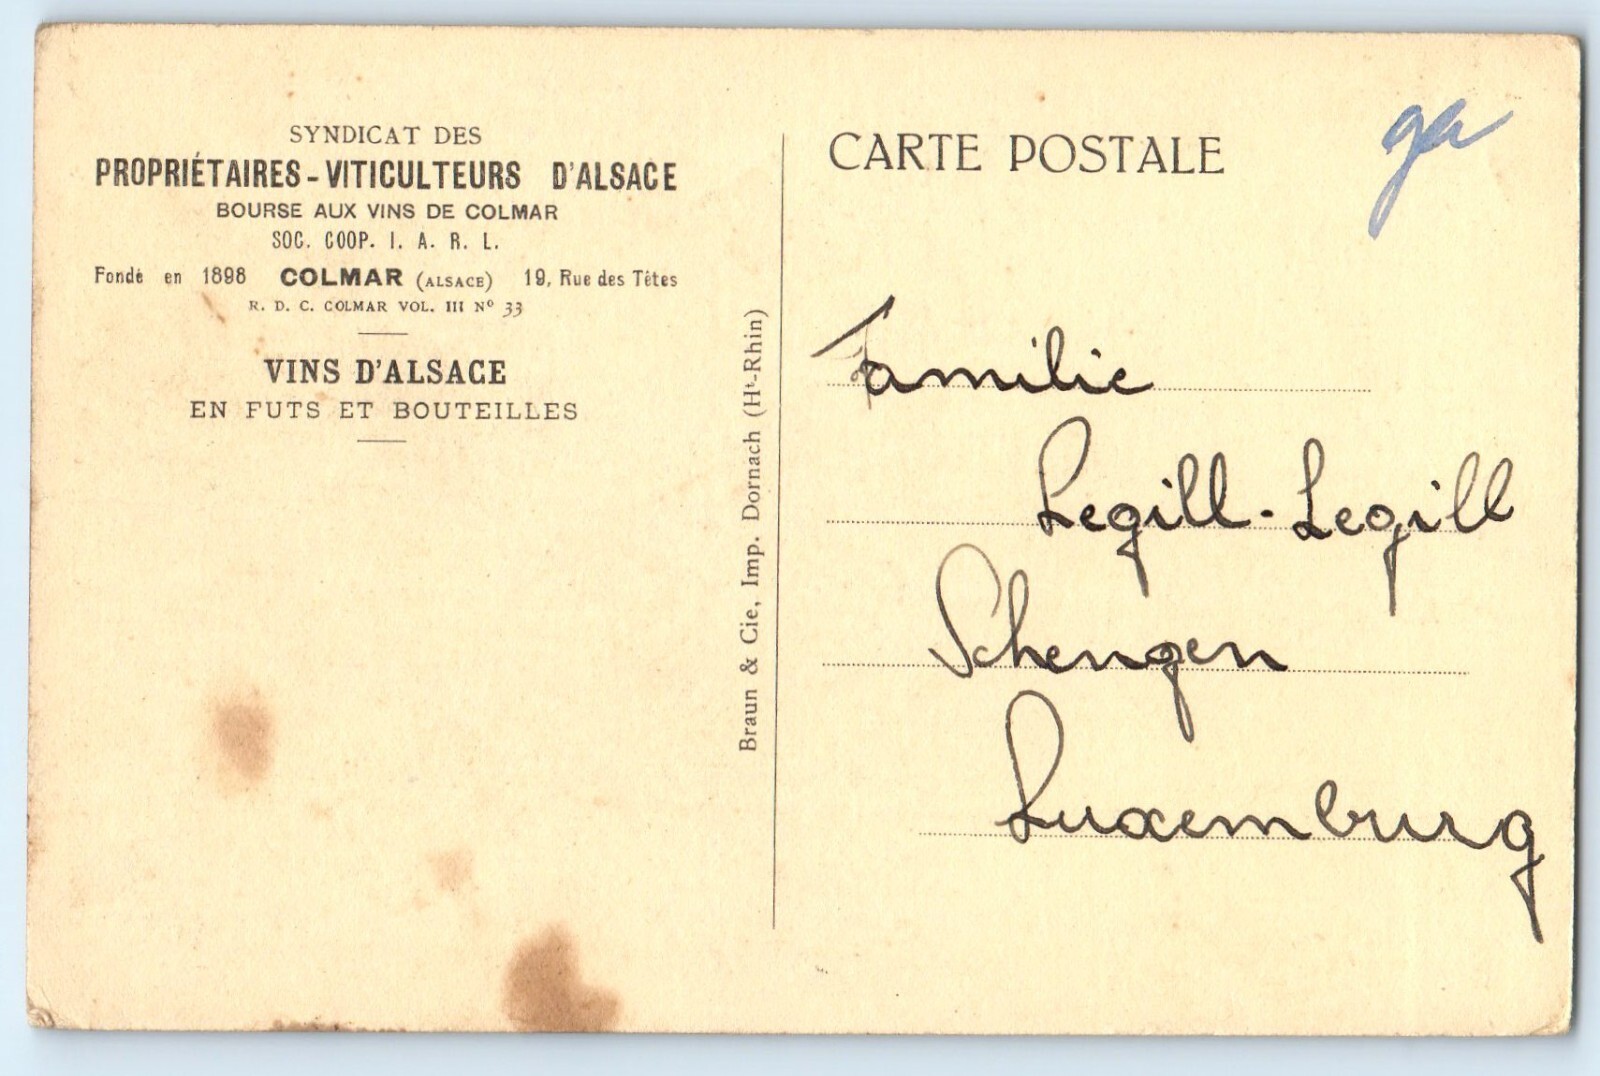 SYNDICAT DES
PROPRIÉTAIRES-VITICULTEURS D'ALSACE
BOURSE AUX VINS DE COLMAR
SOC. COOP. I. A. R. L.
Fondé en 1898 COLMAR (ALSACE) 19, Rue des Têtes
R. D. C. COLMAR VOL. III Nº 33
VINS D'ALSACE
EN FUTS ET BOUTEILLES
Braun & Cie, Imp. Dornach (Ht-Rhin)
CARTE POSTALE
Familie
Legill-Legill
Schengen
Luxemburg